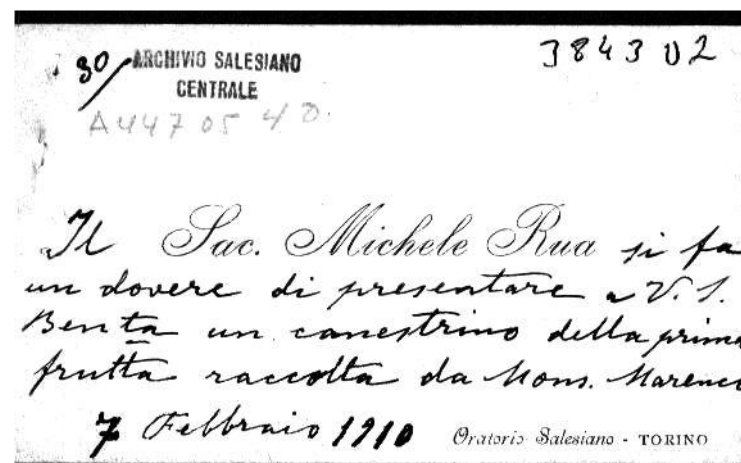 30 ARCHIVIO SALESIANO
CENTRALE
3843 02
A447 05 4 D.
Il Sac. Michele Rua si fa
un dovere di presentare a V. S.
Benta un canestrino della prima
frutta raccolta da Mons. Marenco
7 Febbraio 1910 Oratorio Salesiano - TORINO